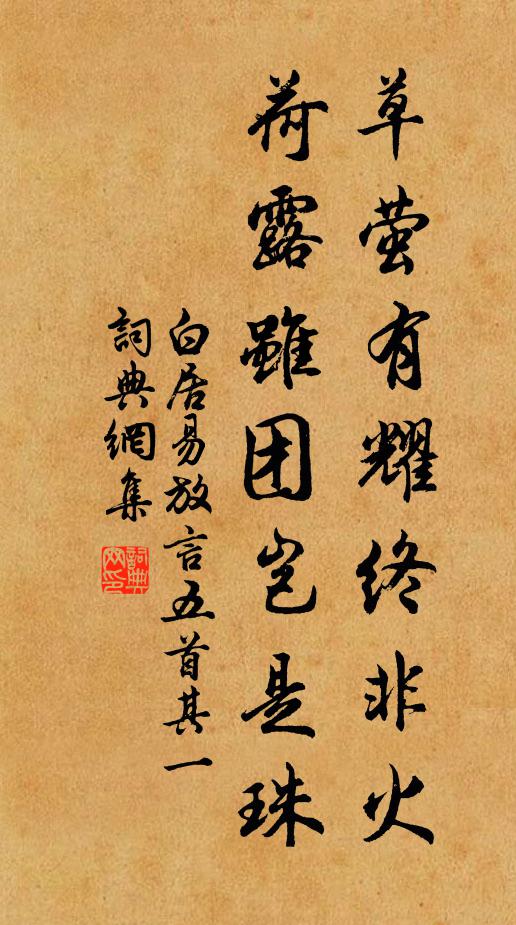 草萤有耀终非火
荷露雖团岂是珠
白居易放言五首其一
詞典網集
詞典網印